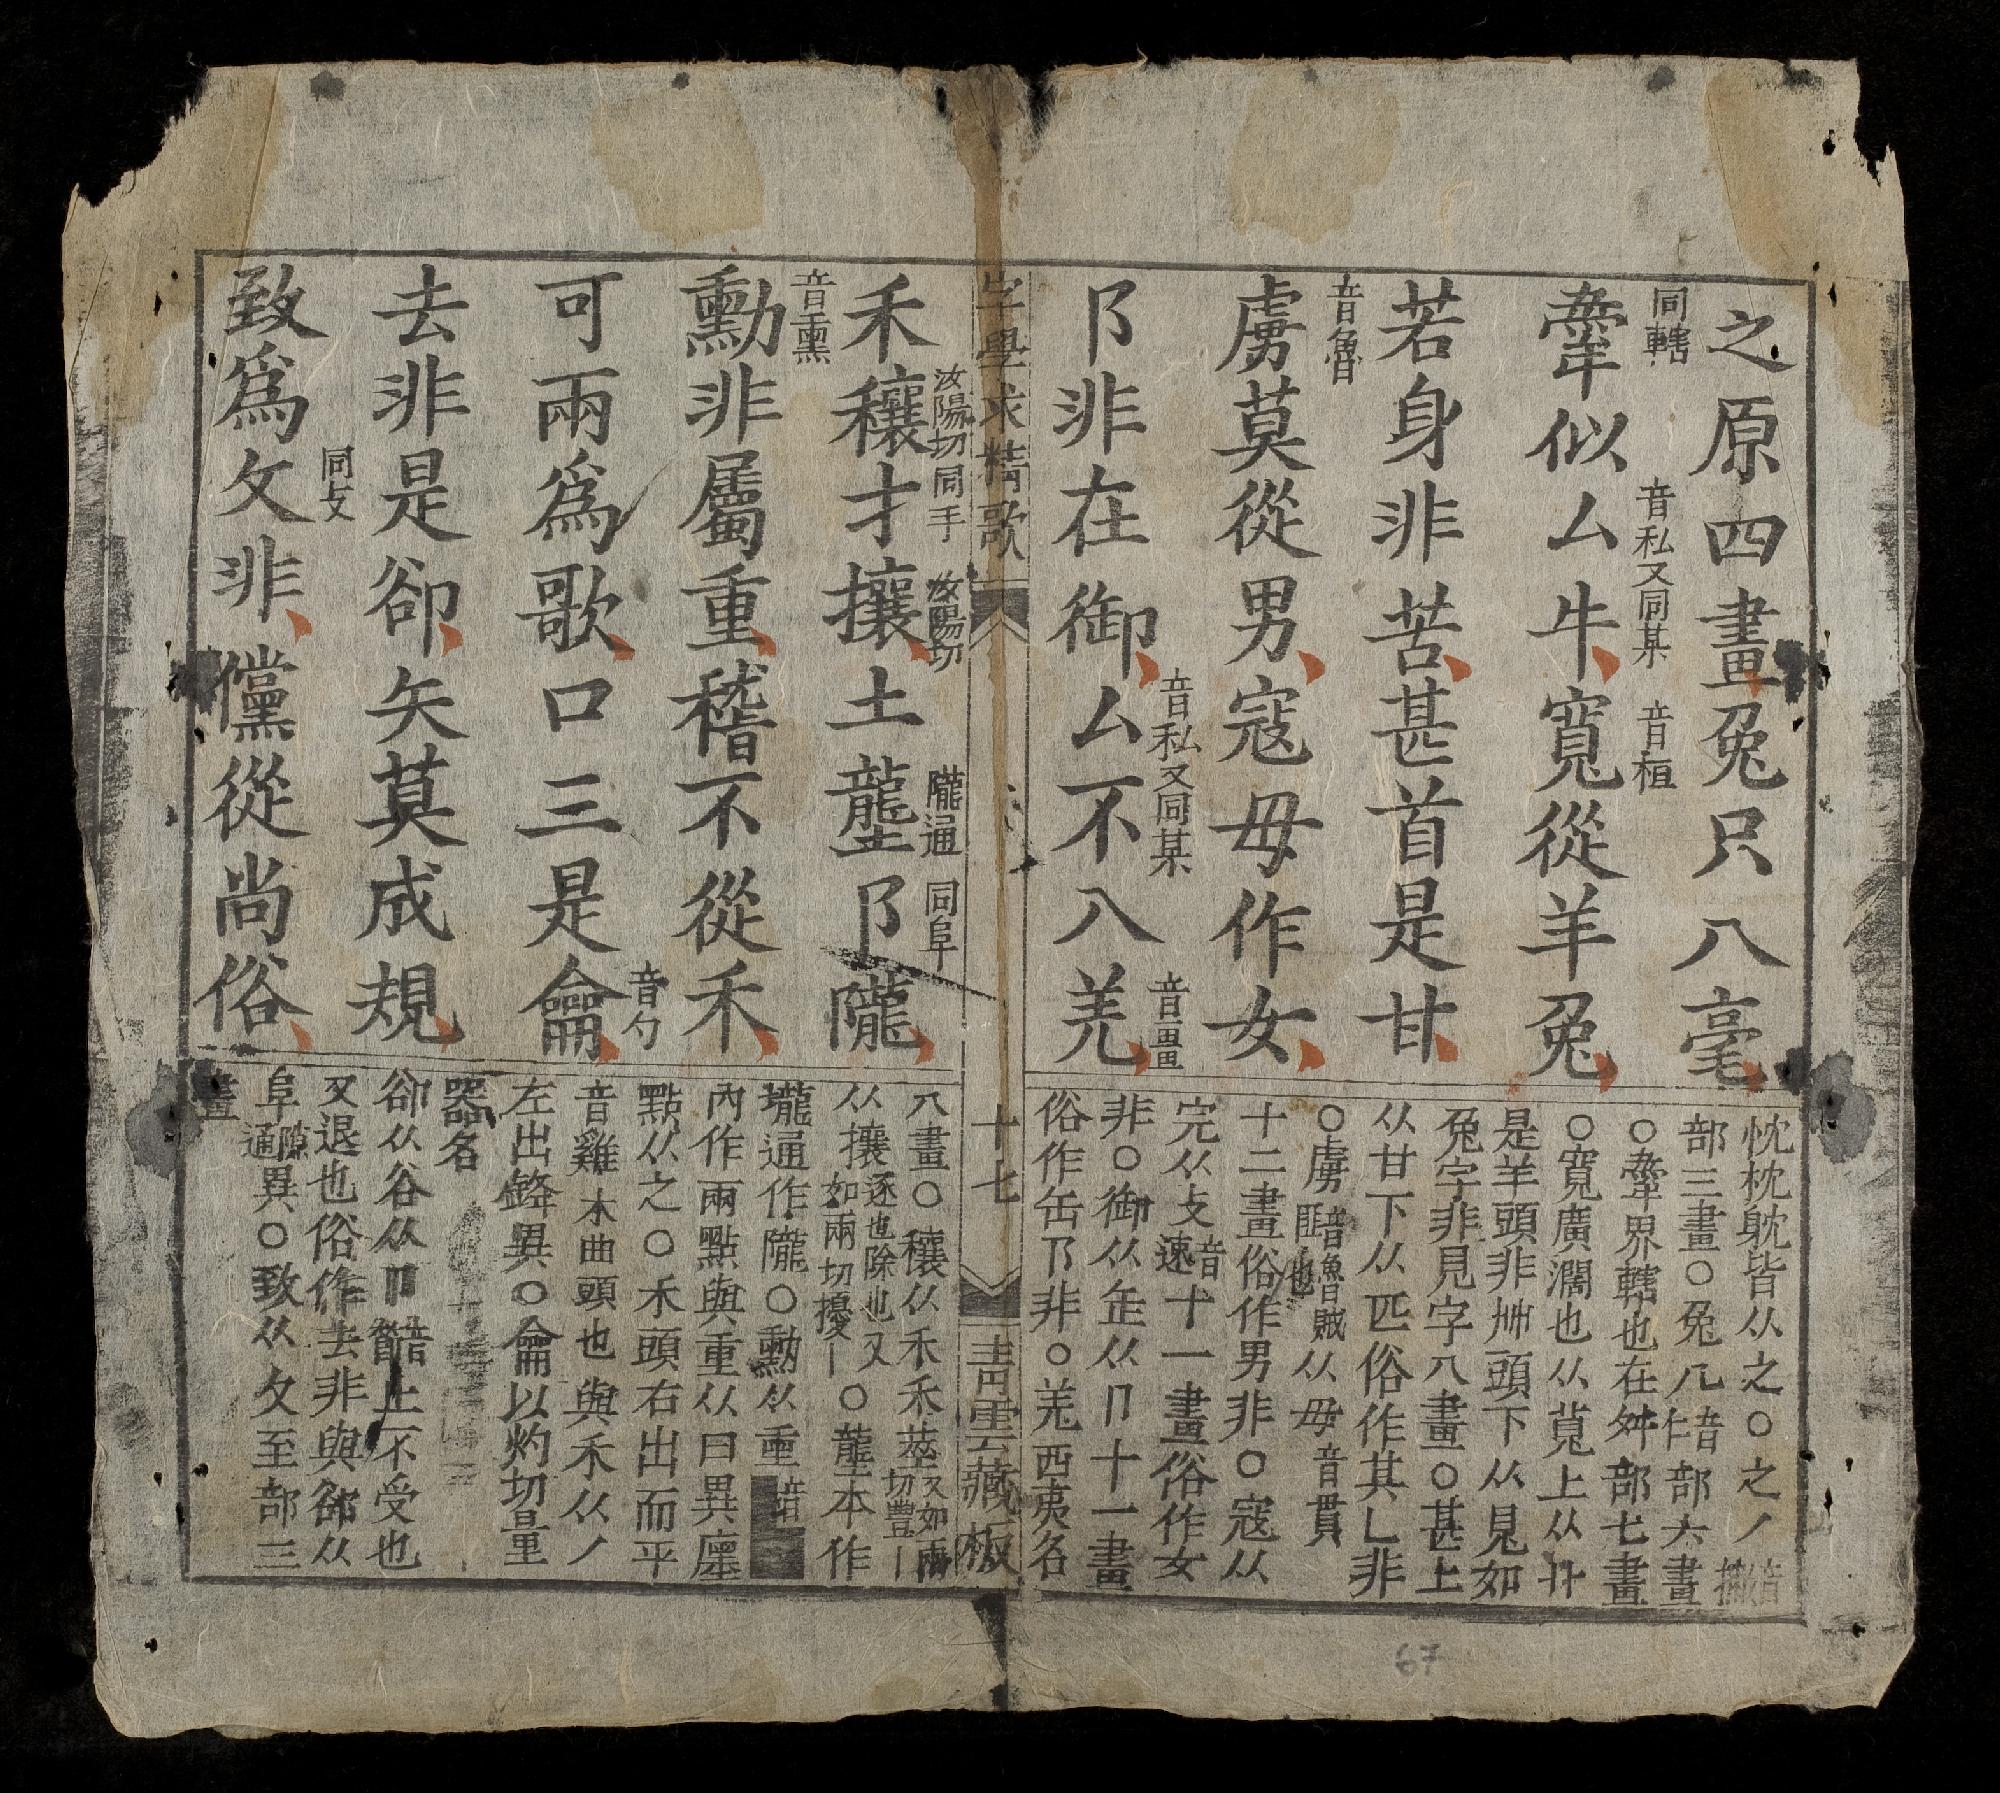 之原四畫兔只八毫
舝似厶牛寬從羊兔
同轄
音私又同某
音桓
若身非苦甚首是甘
虜莫從男寇毋作女
音魯
卩非在御厶不八羌
音私又同某
音畺
忱枕躭皆从之○之丿音撇
部三畫○兔八音仁部六畫
○舝界轄也在舛部七畫
○寬廣濶也从莧上从卝
是羊頭非艸頭下从見如
兔字非見字八畫○甚上
从甘下从匹俗作其乚非
○虜音魯賊也从毋音貫
十二畫俗作男非○寇从
完从攴音速十一畫俗作女
非○御从缷从卩十一畫
俗作缶卩非○羌西夷名
字學求精歌
十七
青雲藏板
禾穰才攘土壟阝隴
汝陽切同手
汝陽切
隴通
同阜
勳非屬重稽不從禾
音熏
可兩爲歌口三是龠
音勺
去非是卻矢莫成規
致爲攵非儻從尚俗
同攴
八畫○穰从禾禾莖又如兩切豐丨
从攘逐也除也又如兩切擾丨○壟本作
壠通作隴○勳从重音
內作兩點與重从曰異廛
點从之○禾頭右出而平
音雞木曲頭也與禾从丿
左出鋒異○龠以灼切量
器名
卻从谷从卩音止不受也
又退也俗作去非與郤从
阜隙通異○致从攵至部三
畫